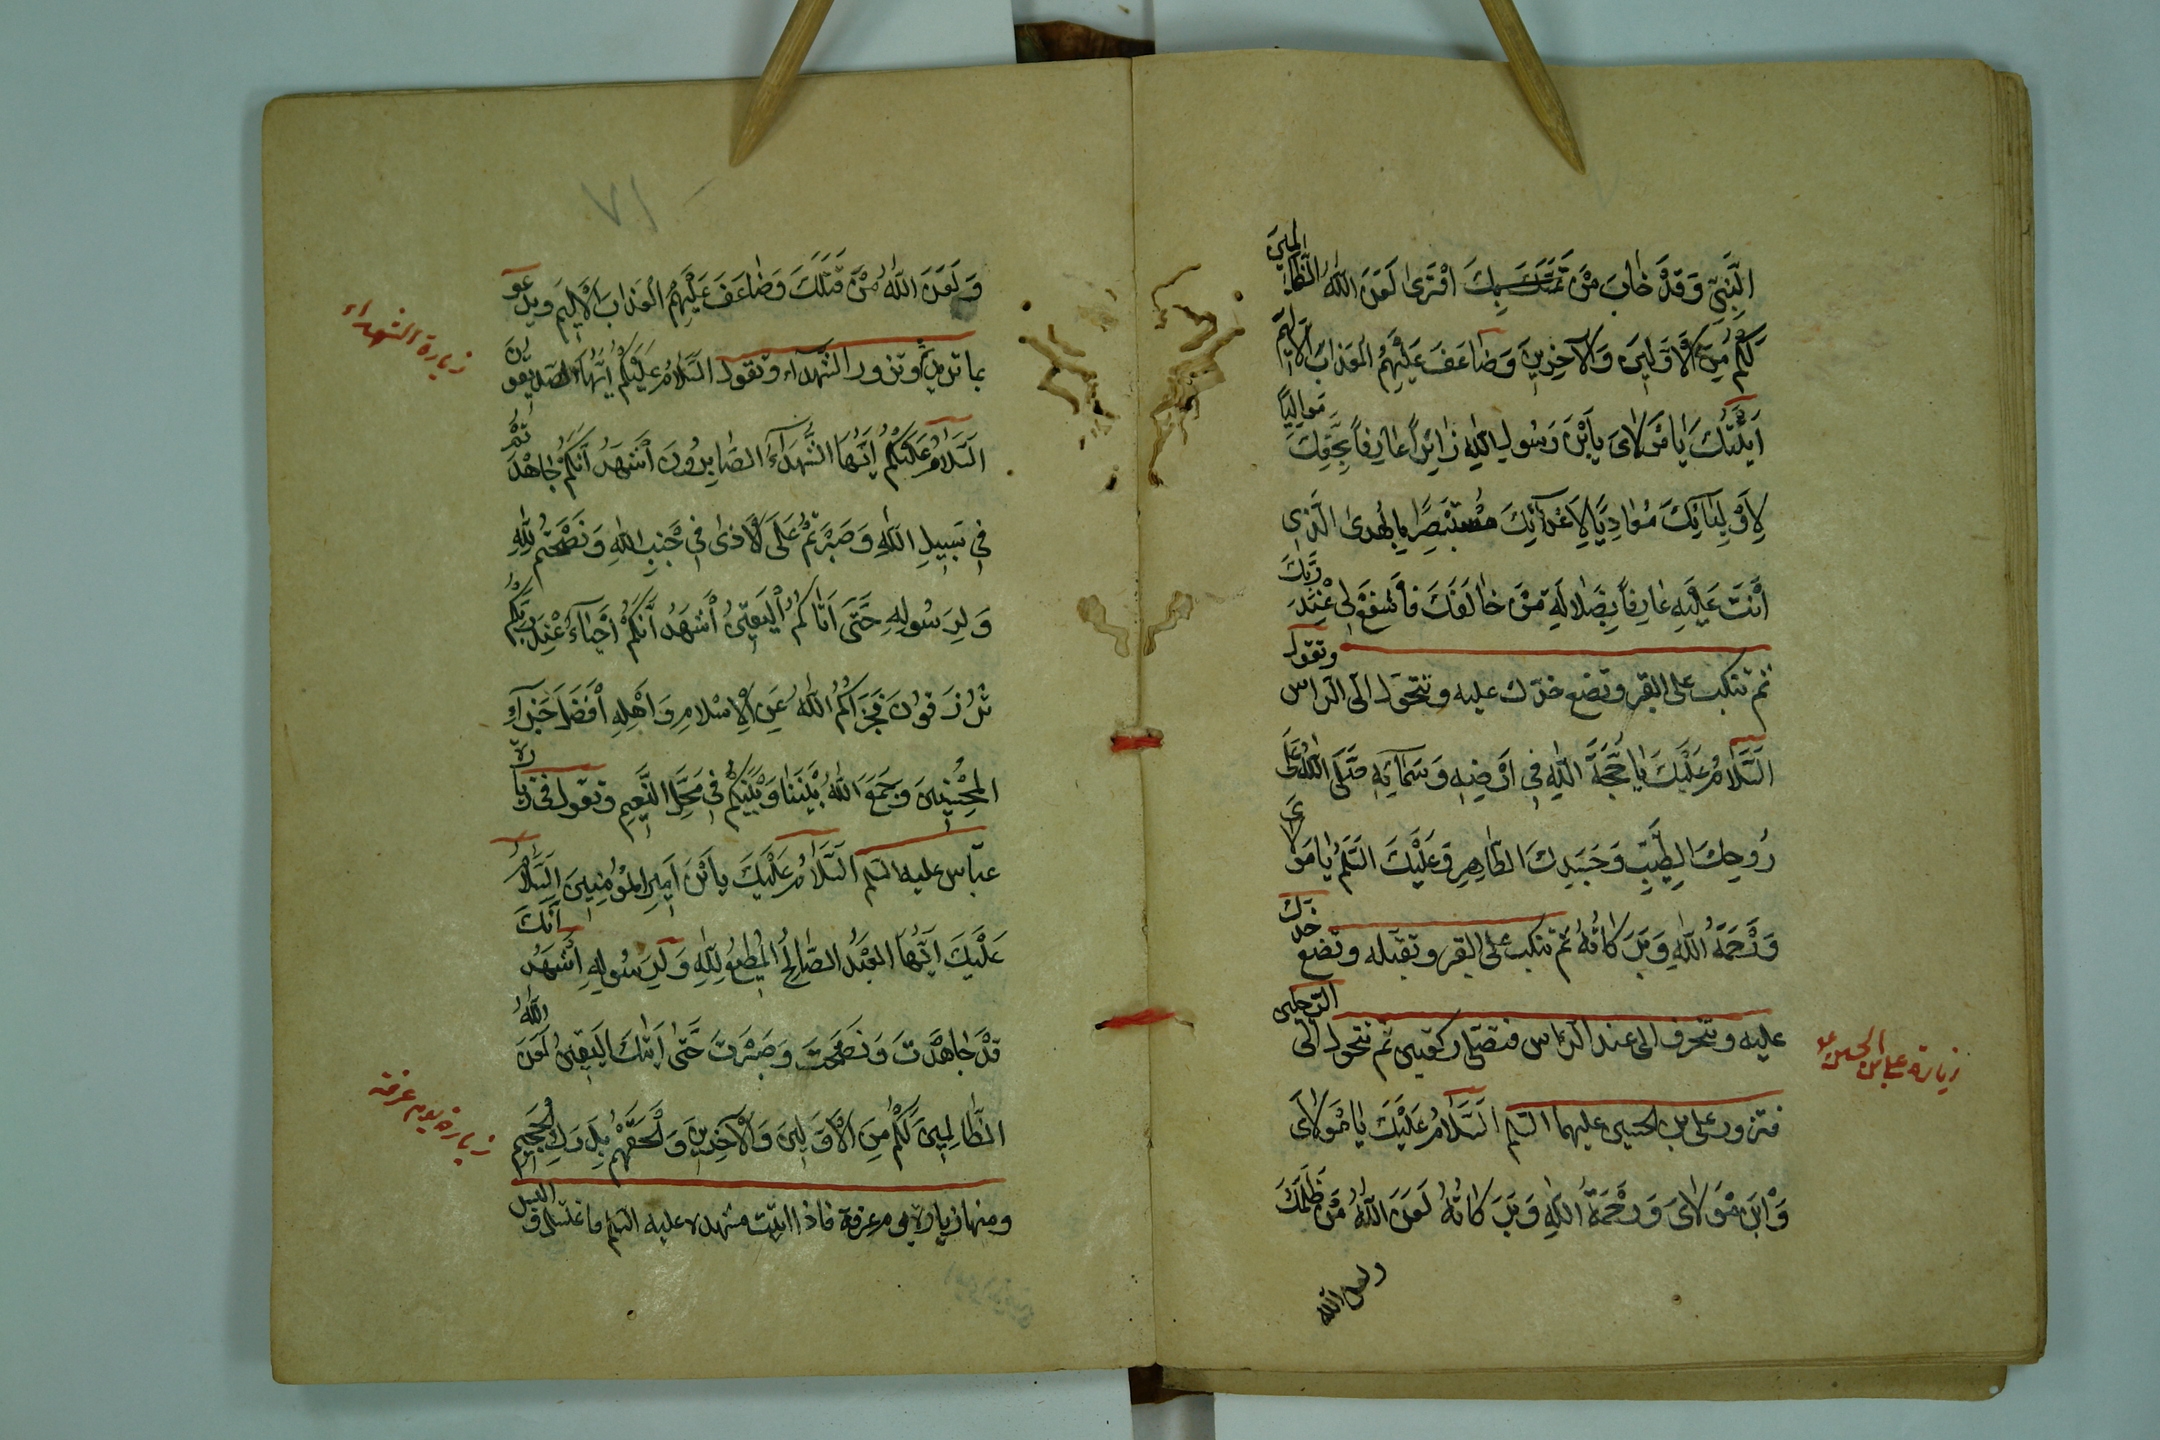 النَّبِيِّ وَقَدْ خَابَ مَنْ تَمَسَّكَ بِكَ افْتَرَىٰ لَعَنَ اللّٰهُ الظَّالِمِينَ
لَكُمْ مِنَ الْأَوَّلِينَ وَالْآخِرِينَ وَضَاعَفَ عَلَيْهِمُ الْعَذَابَ الْأَلِيمَ
أَتَيْتُكَ يَا مَوْلَايَ يَا بْنَ رَسُولِ اللّٰهِ زَائِرًا عَارِفًا بِحَقِّكَ مُوَالِيًا
لِأَوْلِيَائِكَ مُعَادِيًا لِأَعْدَائِكَ مُسْتَبْصِرًا بِالْهُدَىٰ الَّذِي
أَنْتَ عَلَيْهِ عَارِفًا بِضَلَالَةِ مَنْ خَالَفَكَ فَاشْفَعْ لِي عِنْدَ رَبِّكَ
ثم تنكب على القبر وتضع خدك عليه وتتحول الى الراس وتقول
السَّلَامُ عَلَيْكَ يَا حُجَّةَ اللّٰهِ فِي أَرْضِهِ وَسَمَائِهِ صَلَّى اللّٰهُ عَلَى
رُوحِكَ الطَّيِّبِ وَجَسَدِكَ الطَّاهِرِ وَعَلَيْكَ السَّلَمُ يَا مَوْلَايَ
وَرَحْمَةُ اللّٰهِ وَبَرَكَاتُهُ ثم تنكب على القبر وتقبله وتضع خدك
عليه وتنحرف الى عند الراس فتصلي ركعتين ثم تتحول الى الرجلين
فتزور على بن الحسين عليهما السلم السَّلَامُ عَلَيْكَ يَا مَوْلَايَ
وَابْنَ مَوْلَايَ وَرَحْمَةُ اللّٰهِ وَبَرَكَاتُهُ لَعَنَ اللّٰهُ مَنْ ظَلَمَكَ
ولعن الله
زيارة على بن الحسين ع
١٧
وَلَعَنَ اللّٰهُ مَنْ قَتَلَكَ وَضَاعَفَ عَلَيْهِمُ الْعَذَابَ الْأَلِيمَ ويدعو
بما تريد وتزور الشهداء وتقول السَّلَامُ عَلَيْكُمْ أَيُّهَا الصِّدِّيقُونَ
السَّلَامُ عَلَيْكُمْ أَيُّهَا الشُّهَدَاءُ الصَّابِرُونَ أَشْهَدُ أَنَّكُمْ جَاهَدْتُمْ
فِي سَبِيلِ اللّٰهِ وَصَبَرْتُمْ عَلَى الْأَذَىٰ فِي جَنْبِ اللّٰهِ وَنَصَحْتُمْ لِلّٰهِ
وَلِرَسُولِهِ حَتَّىٰ أَتَاكُمُ الْيَقِينُ أَشْهَدُ أَنَّكُمْ أَحْيَاءٌ عِنْدَ رَبِّكُمْ
تُرْزَقُونَ فَجَزَاكُمُ اللّٰهُ عَنِ الْإِسْلَامِ وَأَهْلِهِ أَفْضَلَ جَزَاءِ
الْمُحْسِنِينَ وَجَمَعَ اللّٰهُ بَيْنَنَا وَبَيْنَكُمْ فِي مَحَلِّ النَّعِيمِ وتقول في زيارة
عباس عليه السلم السَّلَامُ عَلَيْكَ يَا بْنَ أَمِيرِ الْمُؤْمِنِينَ السَّلَامُ
عَلَيْكَ أَيُّهَا الْعَبْدُ الصَّالِحُ الْمُطِيعُ لِلّٰهِ وَلِرَسُولِهِ أَشْهَدُ أَنَّكَ
قَدْ جَاهَدْتَ وَنَصَحْتَ وَصَبَرْتَ حَتَّىٰ أَتَيٰكَ الْيَقِينُ لَعَنَ اللّٰهُ
الظَّالِمِينَ لَكُمْ مِنَ الْأَوَّلِينَ وَالْآخِرِينَ وَأَلْحَقَهُمْ بِدَرَكِ الْجَحِيمِ
ومنها زيارة يوم عرفة فاذا اتيت مشهده عليه السلم فاغتسل و البس
زيارة الشهداء
زيارة يوم عرفة